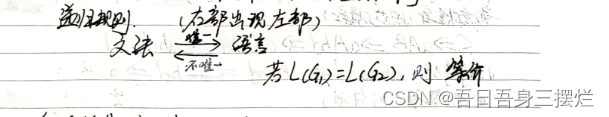 递归规则. (右部出现左部)
文法 唯一 ⇄ 不唯一 语言
若L(G₁)=L(G₂),则 等价
CSDN @吾日吾身三摆烂